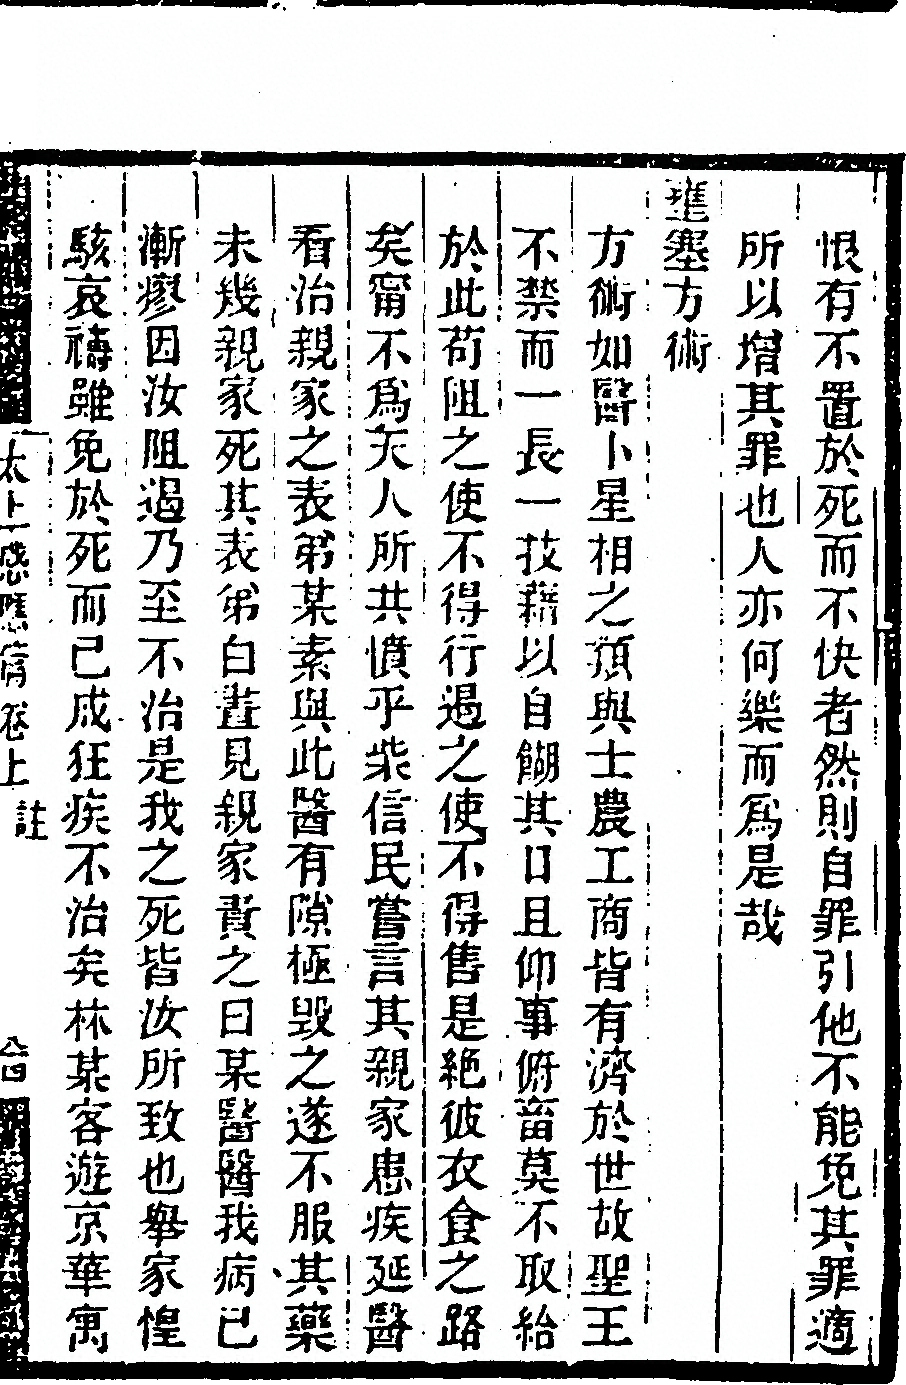 恨有不置於死而不快者然則自罪引他不能免其罪適
所以增其罪也人亦何樂而爲是哉
壅塞方術
方術如醫卜星相之類與士農工商皆有濟於世故聖王
不禁而一長一技藉以自餬其口且仰事俯畜莫不取給
於此苟阻之使不得行遏之使不得售是絕彼衣食之路
矣甯不爲天人所共憤乎柴信民嘗言其親家患疾延醫
看治親家之表弟某素與此醫有隙極毀之遂不服其藥
未幾親家死其表弟白晝見親家責之曰某醫醫我病已
漸瘳因汝阻遏乃至不治是我之死皆汝所致也舉家惶
駭哀禱雖免於死而已成狂疾不治矣林某客遊京華寓
太上感應篇卷上
註